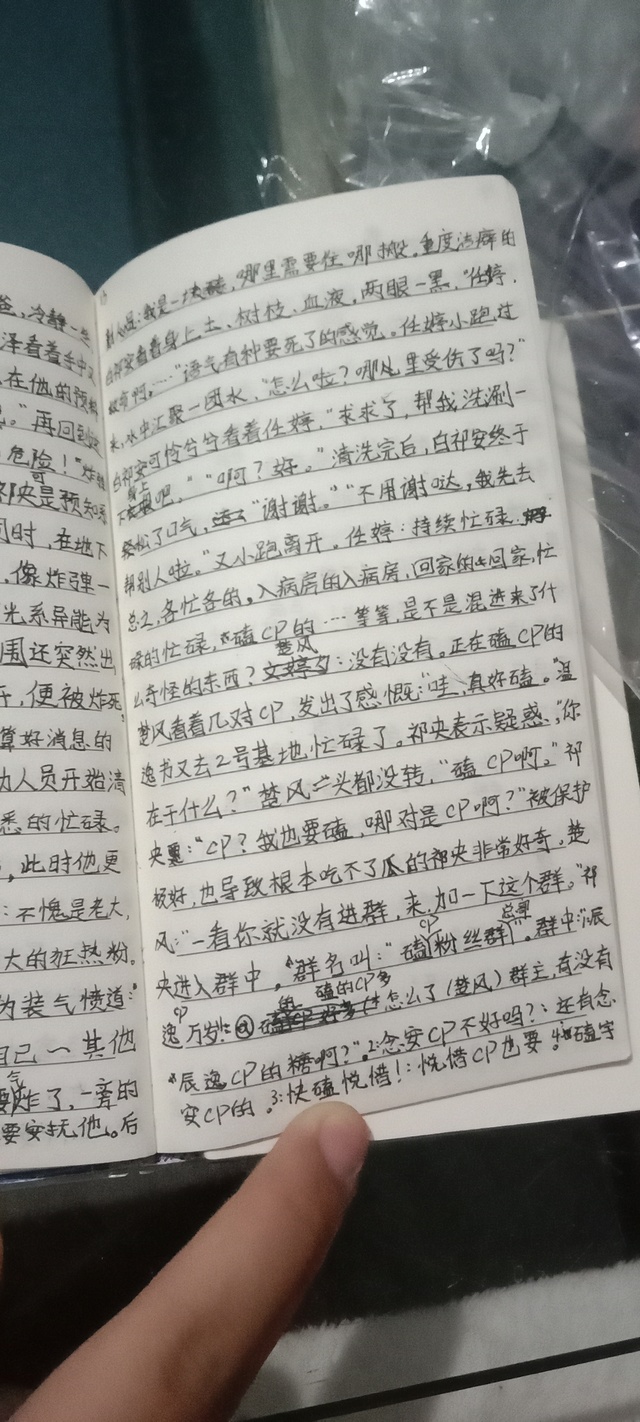 爸，冷静一些
泽看着手中又
在他的预料
。”再回到
危险！”炸
祁央是预知
同时，在地下
，像炸弹一
光系异能为
周还突然出
于，便被炸死。
算好消息的
力人员开始清
悉的忙碌。
，此时他更
：不愧是老大，
大的狂热粉。
为装气愤道：“
自己一其他
气
要炸了，一旁的
要安抚他。后
：我是一块砖，哪里需要往哪搬。重度洁癖的
白祁安看着身上土、树枝、血液，两眼一黑，“任婷，
救命啊，…”语气有种要死了的感觉。任婷小跑过
来，水中汇聚一团水，“怎么啦？哪儿里受伤了吗？”
白祁安可怜兮兮看着任婷，“求求了，帮我洗涮一
身上
下吧。”“啊？好。”清洗完后，白祁安终于
轻松了口气，“谢谢。”“不用谢哒，我先去
帮别人啦。”又小跑离开。任婷：持续忙碌
总之，各忙各的。入病房的入病房，回家的回家，忙
碌的忙碌，磕CP的…等等，是不是混进来了什
楚风
么奇怪的东西？：没有没有。正在磕CP的
楚风看着几对CP，发出了感慨：“哇，真好磕。”温
逸书又去2号基地忙碌了。祁央表示疑惑，“你
在干什么？”楚风头都没转，“磕CP啊。”祁
央：“CP？我也要磕，哪对是CP啊？”被保护
极好，也导致根本吃不了瓜的祁央非常好奇，楚
风：“一看你就没有进群，来，加一下这个群。”祁
CP 总
央进入群中，“群名叫：“磕粉丝群”。群中：“辰
CP 磕的CP多
逸万岁！怎么了（楚风）群主，有没有
“辰逸CP的糖啊？”2：念安CP不好吗？：还有念
安CP的。3：快磕悦惜！：悦惜CP也要。4：磕宇